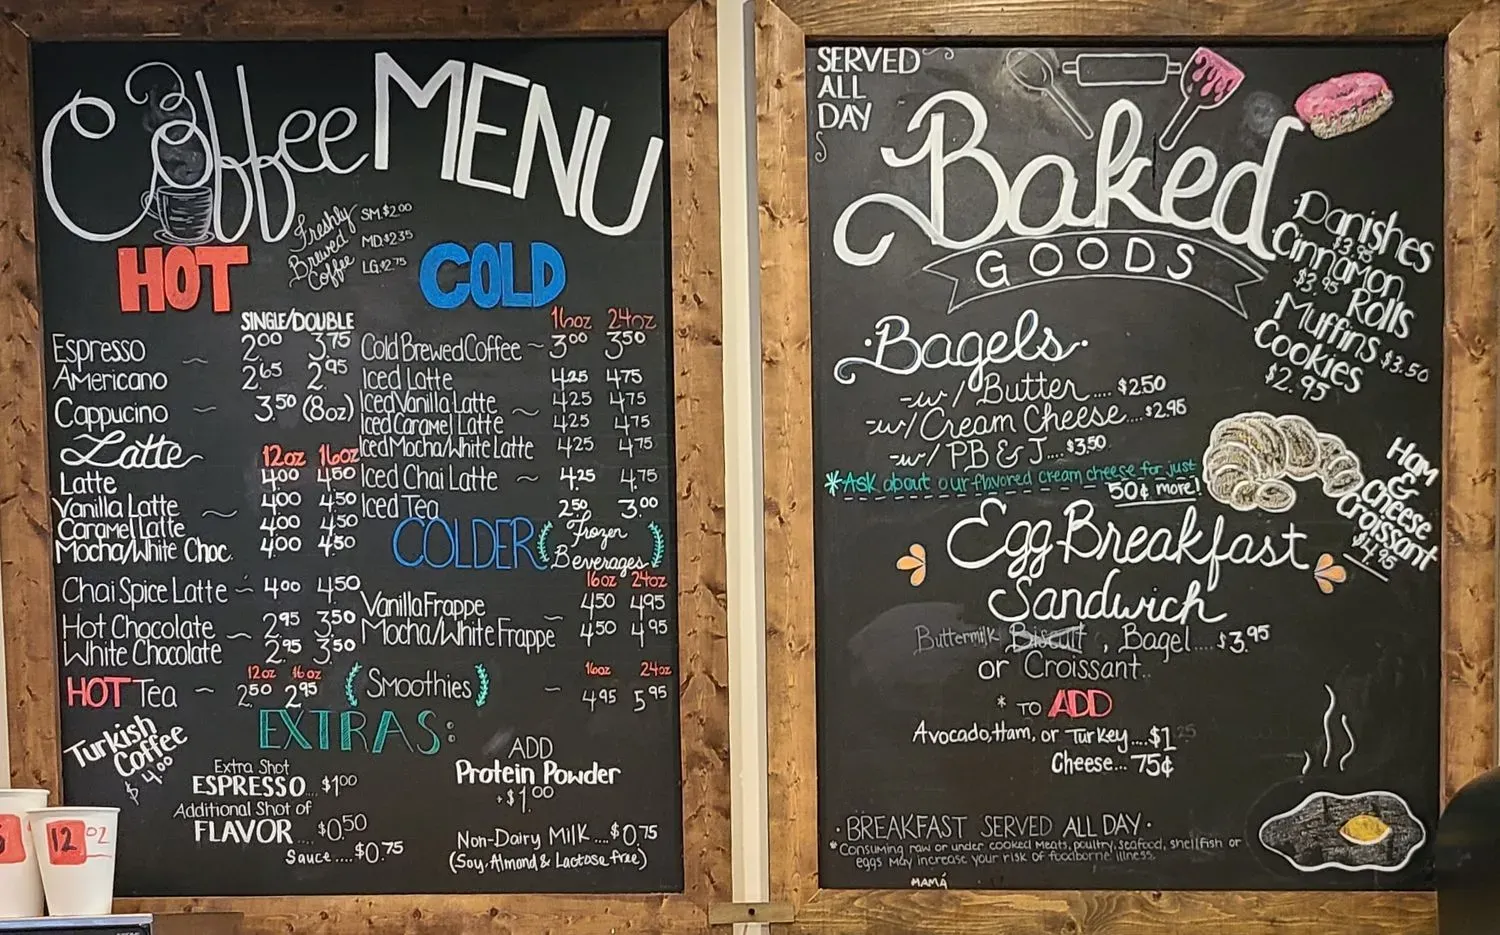 Coffee MENU
Freshly Brewed Coffee
SM.$2.00
MD.$2.35
LG.$2.75
HOT
SINGLE/DOUBLE
Espresso ~ 2.00 3.75
Americano 2.65 2.95
Cappucino ~ 3.50 (8oz)
Latte 12oz 16oz
Latte 4.00 4.50
Vanilla Latte ~ 4.00 4.50
Caramel Latte 4.00 4.50
Mocha/White Choc. 4.00 4.50
Chai Spice Latte ~ 4.00 4.50
Hot Chocolate ~ 2.95 3.50
White Chocolate 2.95 3.50
12oz 16oz
HOT Tea ~ 2.50 2.95
Turkish
Coffee
$4.00
COLD
16oz 24oz
Cold Brewed Coffee ~ 3.00 3.50
Iced Latte 4.25 4.75
Iced Vanilla Latte ~ 4.25 4.75
Iced Caramel Latte 4.25 4.75
Iced Mocha/White Latte 4.25 4.75
Iced Chai Latte ~ 4.25 4.75
Iced Tea 2.50 3.00
COLDER (Frozen
Beverages)
16oz 24oz
Vanilla Frappe ~ 4.50 4.95
Mocha/White Frappe 4.50 4.95
16oz 24oz
(Smoothies) ~ 4.95 5.95
EXTRAS:
Extra Shot
ESPRESSO... $1.00
Additional Shot of
FLAVOR.... $0.50
Sauce....$0.75
ADD
Protein Powder
+$1.00
Non-Dairy Milk....$0.75
(Soy, Almond & Lactose free)
12 oz
SERVED
ALL
DAY
Baked
GOODS
·Danishes
$3.95
Cinnamon
Rolls
$3.95
·Muffins $3.50
Cookies
$2.95
·Bagels·
-w/ Butter.... $2.50
-w/ Cream Cheese...$2.95
-w/ PB & J.... $3.50
*Ask about our flavored cream cheese for just
50¢ more!
Ham
&
Cheese
Croissant
$4.95
Egg Breakfast
Sandwich
Buttermilk Biscuit, Bagel....$3.95
or Croissant..
* TO ADD
Avocado, Ham, or Turkey....$1.25
Cheese... 75¢
·BREAKFAST SERVED ALL DAY·
*Consuming raw or under cooked meats, poultry, seafood, shellfish or
eggs may increase your risk of foodborne illness.
MAMÁ